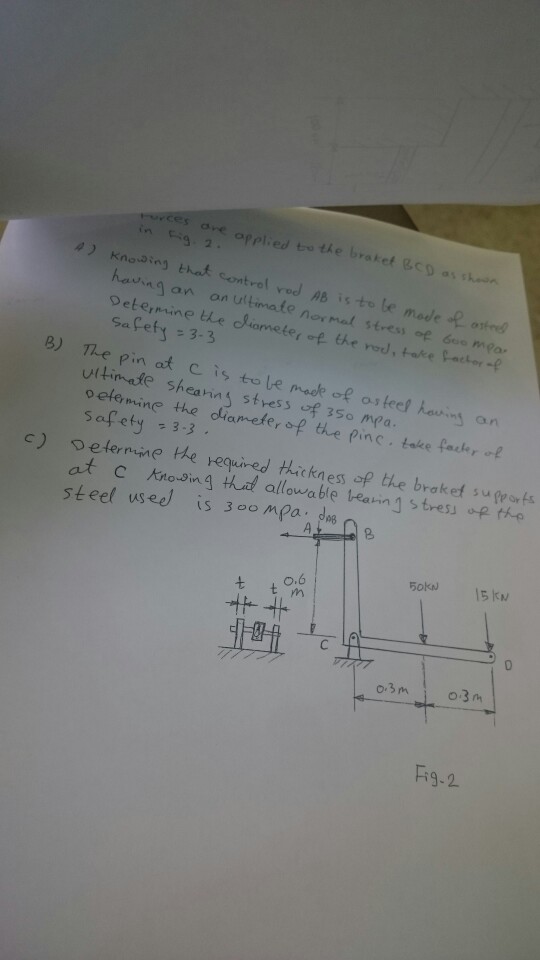 forces are applied to the braket BCD as shown
in Fig. 2.
A) Knowing that control rod AB is to be made of a steel
having an an ultimate normal stress of 600 mpa.
Determine the diameter of the rod, take factor of
Safety = 3-3
B) The pin at C is to be made of a steel having an
ultimate shearing stress of 350 mpa.
Determine the diameter, of the pinc. take facter of
safety = 3-3.
C) Determine the required thickness of the braket supports
at C Knowing that allowable bearing stress of the
steel used is 300 mpa.
dAB
A
B
0.6
m
t
t
50KN
15KN
C
D
0.3m
0.3m
Fig-2